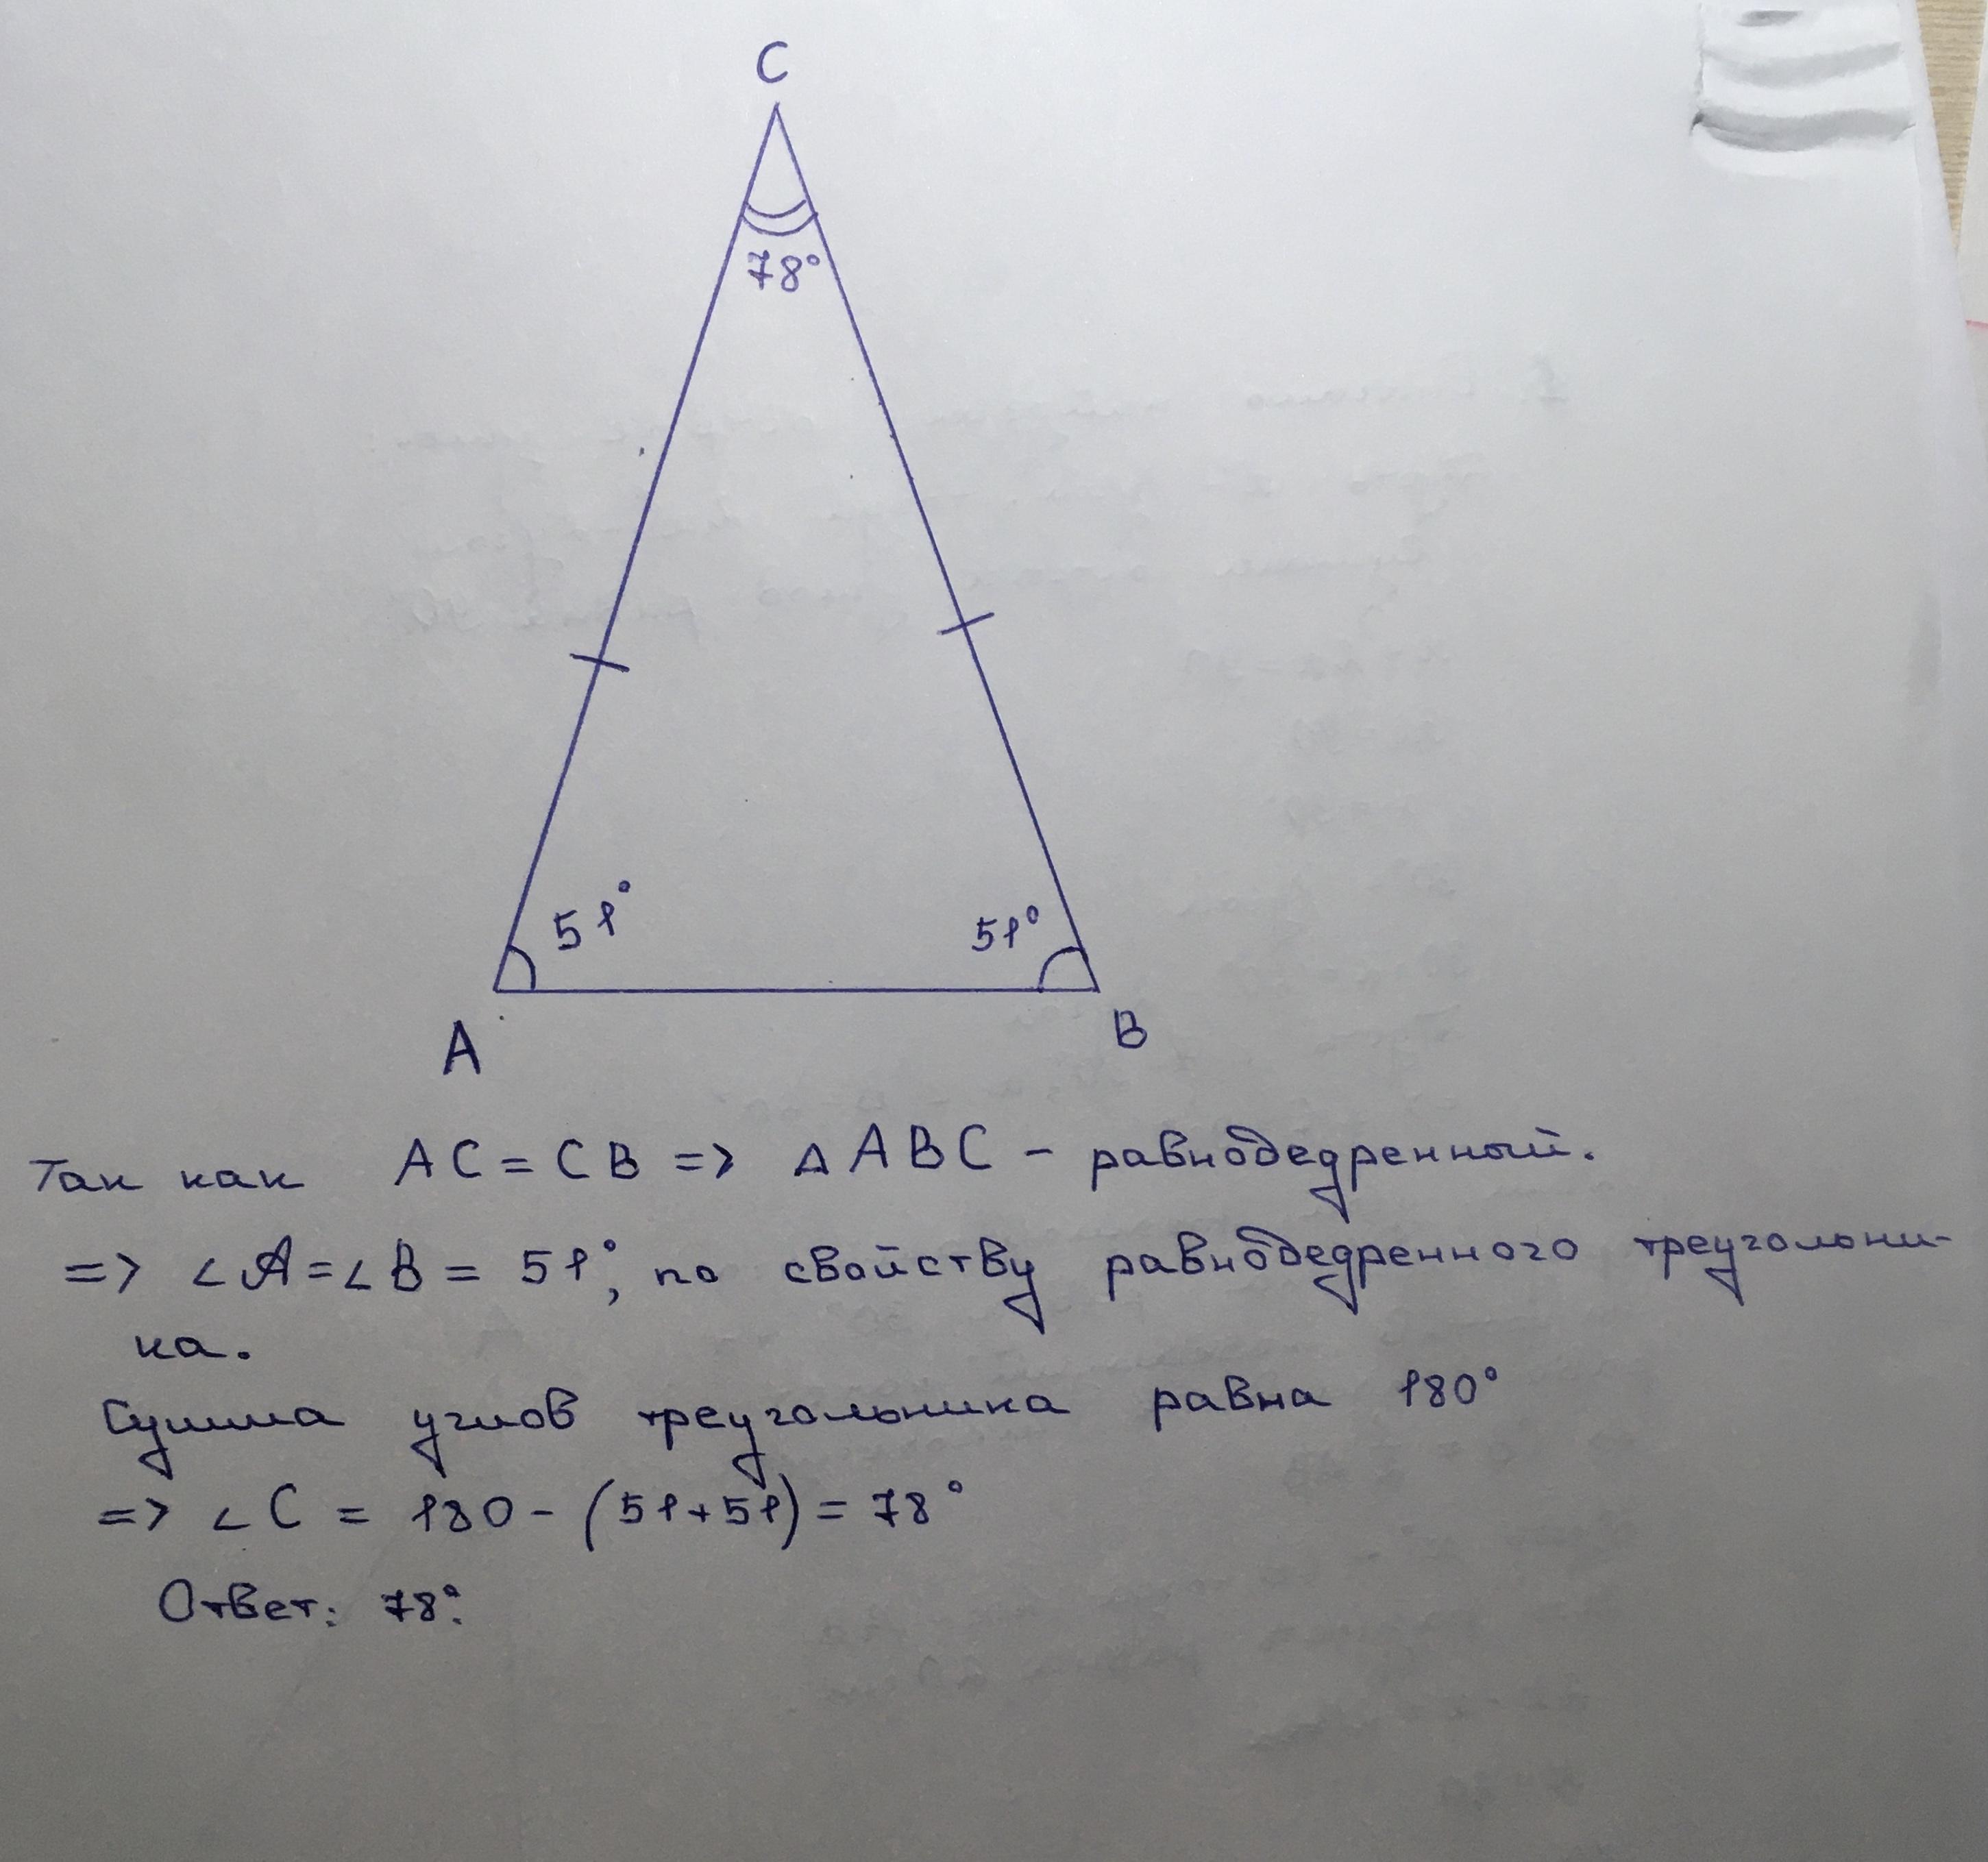 C
78°
51°
51°
A
B
Так как AC = CB => △ABC - равнобедренный.
=> ∠A = ∠B = 51°, по свойству равнобедренного треугольни-
ка.
Сумма углов треугольника равна 180°
=> ∠C = 180 - (51+51) = 78°
Ответ: 78°.